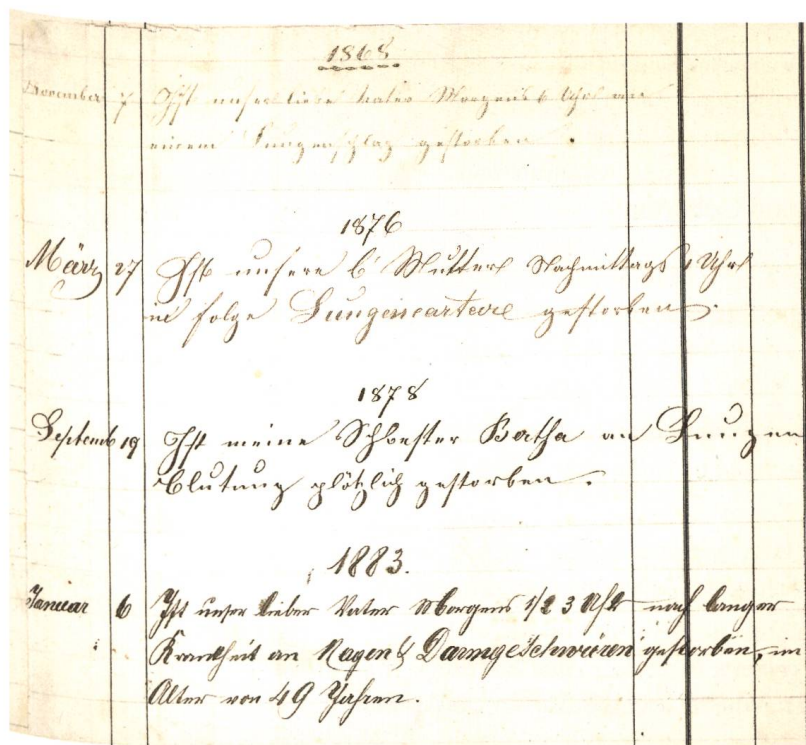 1868
November 7 Ist unser liebe Vater Morgens 6 Uhr an
einem Lungenschlag gestorben .
1876
März 27 Ist unsere l' Mutter Nachmittags 1 Uhr
in folge gestorben.
1878
Septemb 19 Ist meine Schwester Bertha an Lungen
blutung plötzlich gestorben.
1883.
Januar 6 Ist unser lieber Vater Morgens 1/2 3 Uhr nach langer
Krankheit an Magen & Darmgeschwüren gestorben, im
Alter von 49 Jahren.